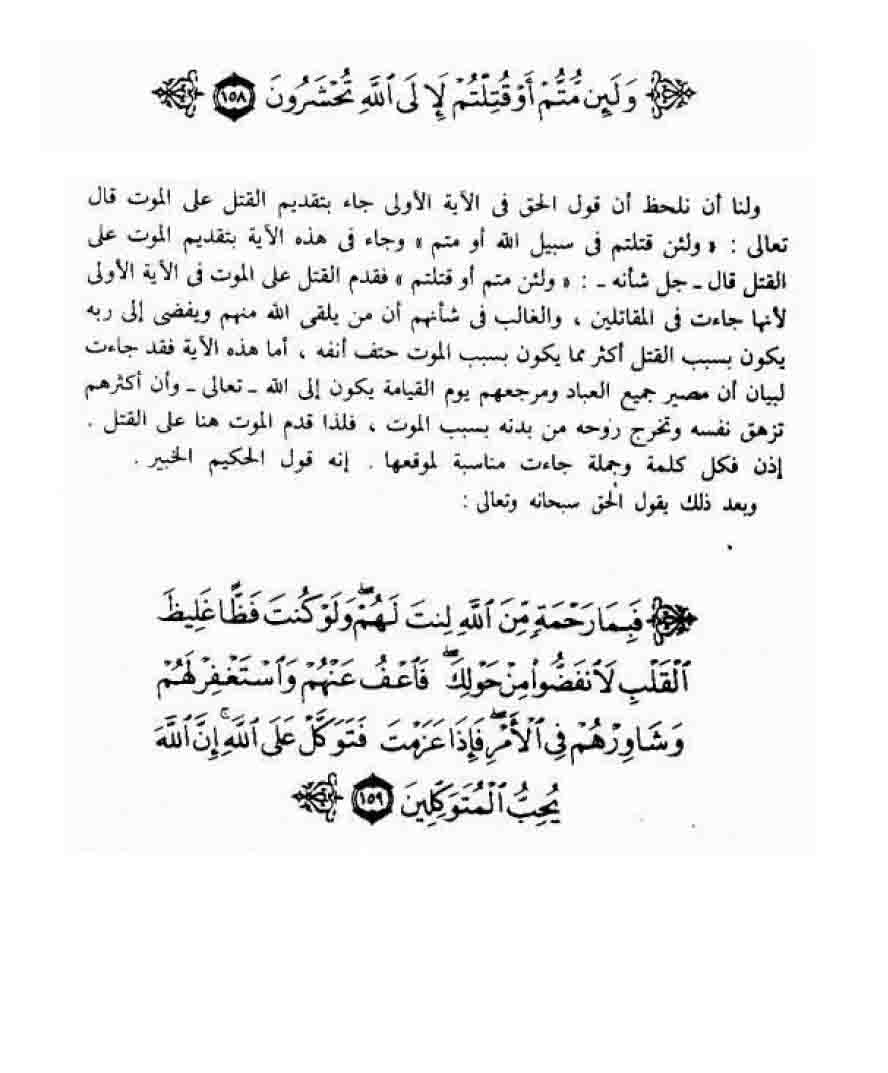 وَلَئِن مُّتُّمْ أَوْ قُتِلْتُمْ لَإِلَى ٱللَّهِ تُحْشَرُونَ ١٥٨
ولنا أن نلحظ أن قول الحق فى الآية الأولى جاء بتقديم القتل على الموت قال
تعالى : « ولئن قتلتم فى سبيل الله أو متم » وجاء فى هذه الآية بتقديم الموت على
القتل قال ـ جل شأنه ـ : « ولئن متم أو قتلتم » فقدم القتل على الموت فى الآية الأولى
لأنها جاءت فى المقاتلين ، والغالب فى شأنهم أن من يلقى الله منهم ويفضى إلى ربه
يكون بسبب القتل أكثر مما يكون بسبب الموت حتف أنفه ، أما هذه الآية فقد جاءت
لبيان أن مصير جميع العباد ومرجعهم يوم القيامة يكون إلى الله ـ تعالى ـ وأن أكثرهم
تزهق نفسه وتخرج روحه من بدنه بسبب الموت ، فلذا قدم الموت هنا على القتل .
إذن فكل كلمة وجملة جاءت مناسبة لموقعها . إنه قول الحكيم الخبير .
وبعد ذلك يقول الحق سبحانه وتعالى :
فَبِمَا رَحْمَةٍ مِّنَ ٱللَّهِ لِنتَ لَهُمْ ۖ وَلَوْ كُنتَ فَظًّا غَلِيظَ
ٱلْقَلْبِ لَٱنفَضُّوا۟ مِنْ حَوْلِكَ ۖ فَٱعْفُ عَنْهُمْ وَٱسْتَغْفِرْ لَهُمْ
وَشَاوِرْهُمْ فِى ٱلْأَمْرِ ۖ فَإِذَا عَزَمْتَ فَتَوَكَّلْ عَلَى ٱللَّهِ ۚ إِنَّ ٱللَّهَ
يُحِبُّ ٱلْمُتَوَكِّلِينَ ١٥٩